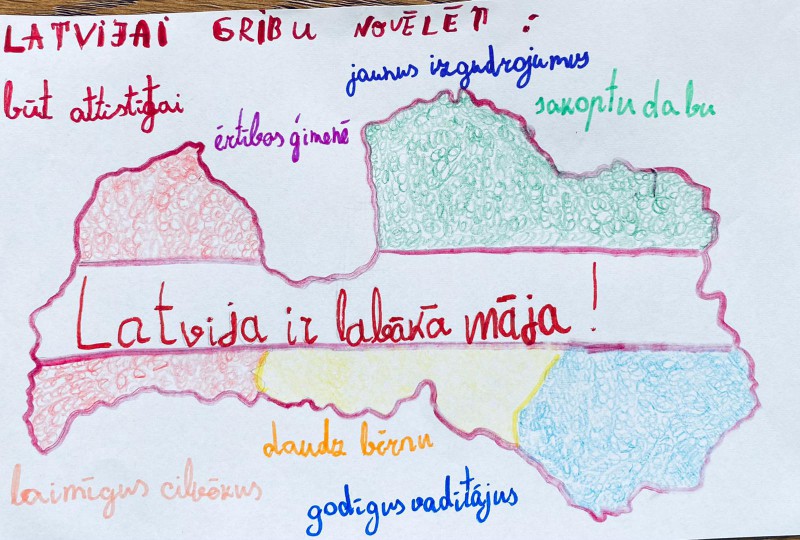 LATVIJAI GRIBU NOVĒLĒT :
jaunus izgudrojumus
būt attīstīgai
sakoptu dabu
ērtības ģimenē
Latvija ir labākā māja!
daudz bērnu
laimīgus cilvēkus
godīgus vadītājus